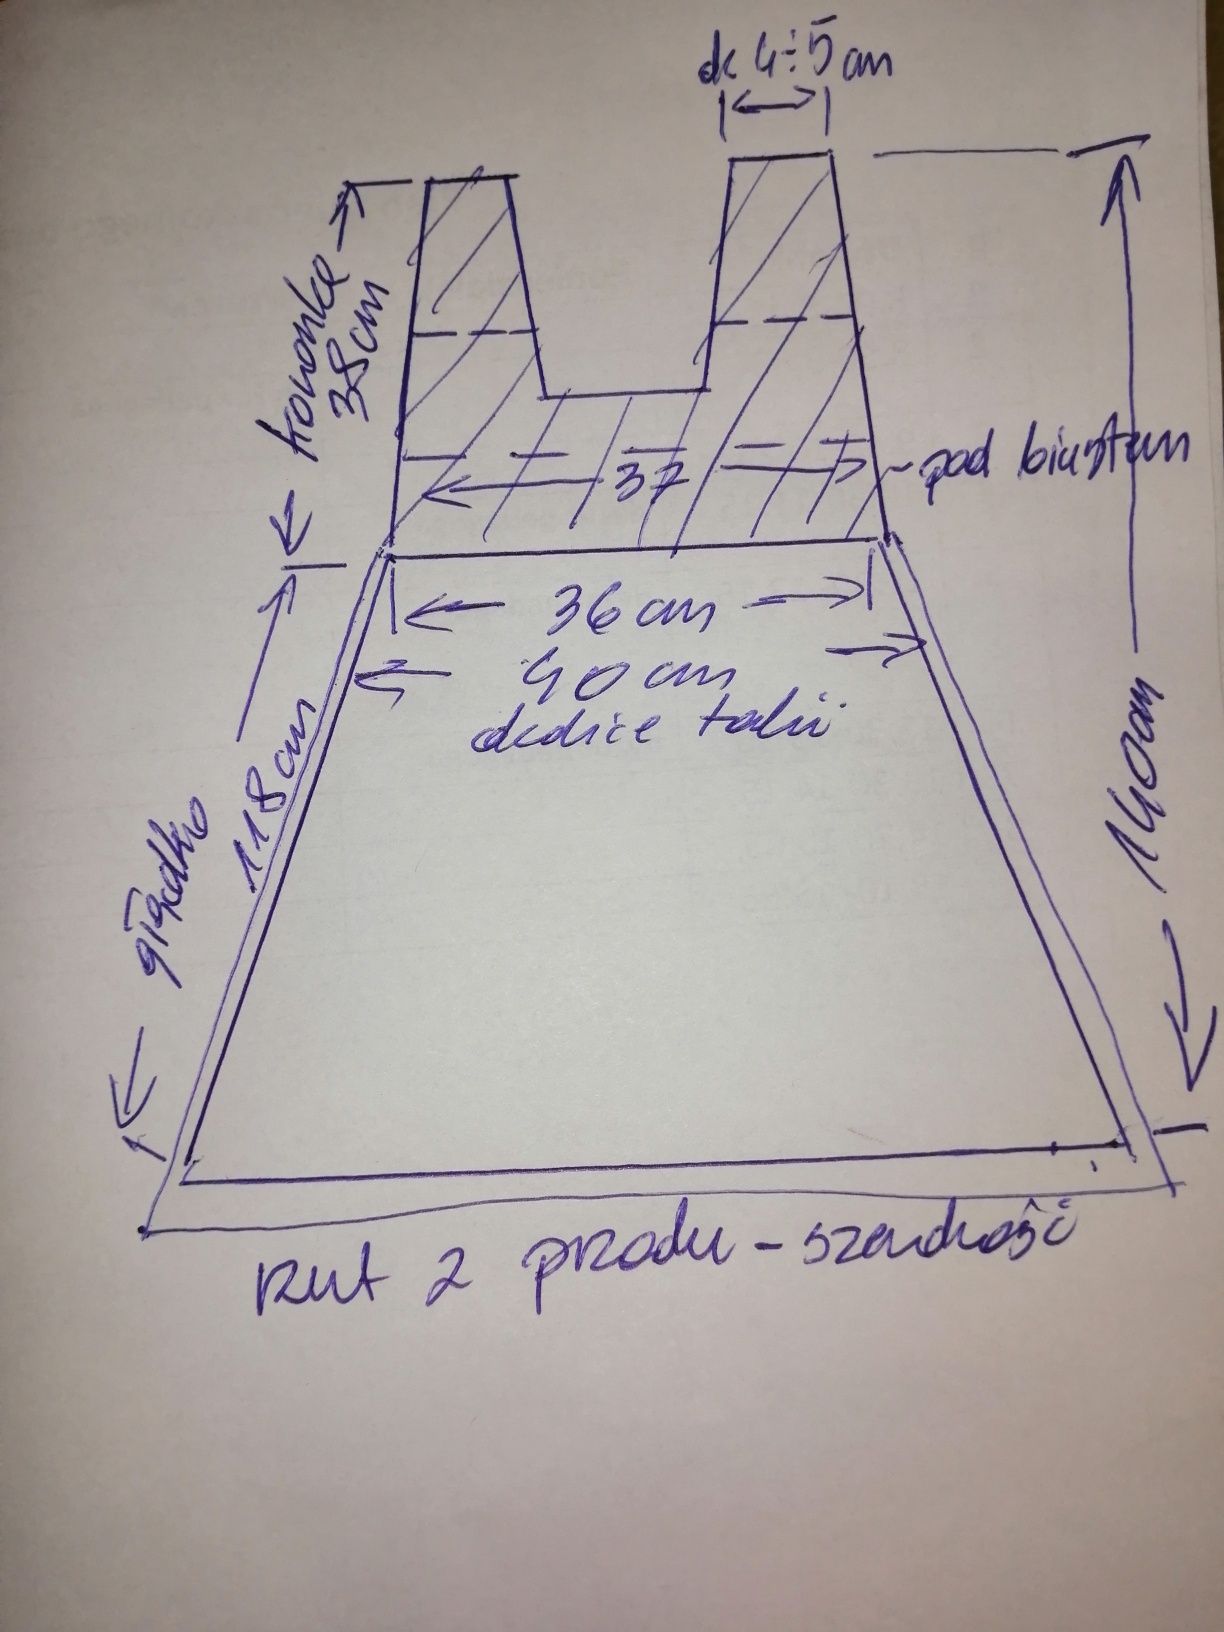 ok 4÷5 cm
koronka
38cm
37
pad biustem
36 cm
40 cm
okolice talii
118 cm
gładko
140cm
rzut z przodu - szerokość